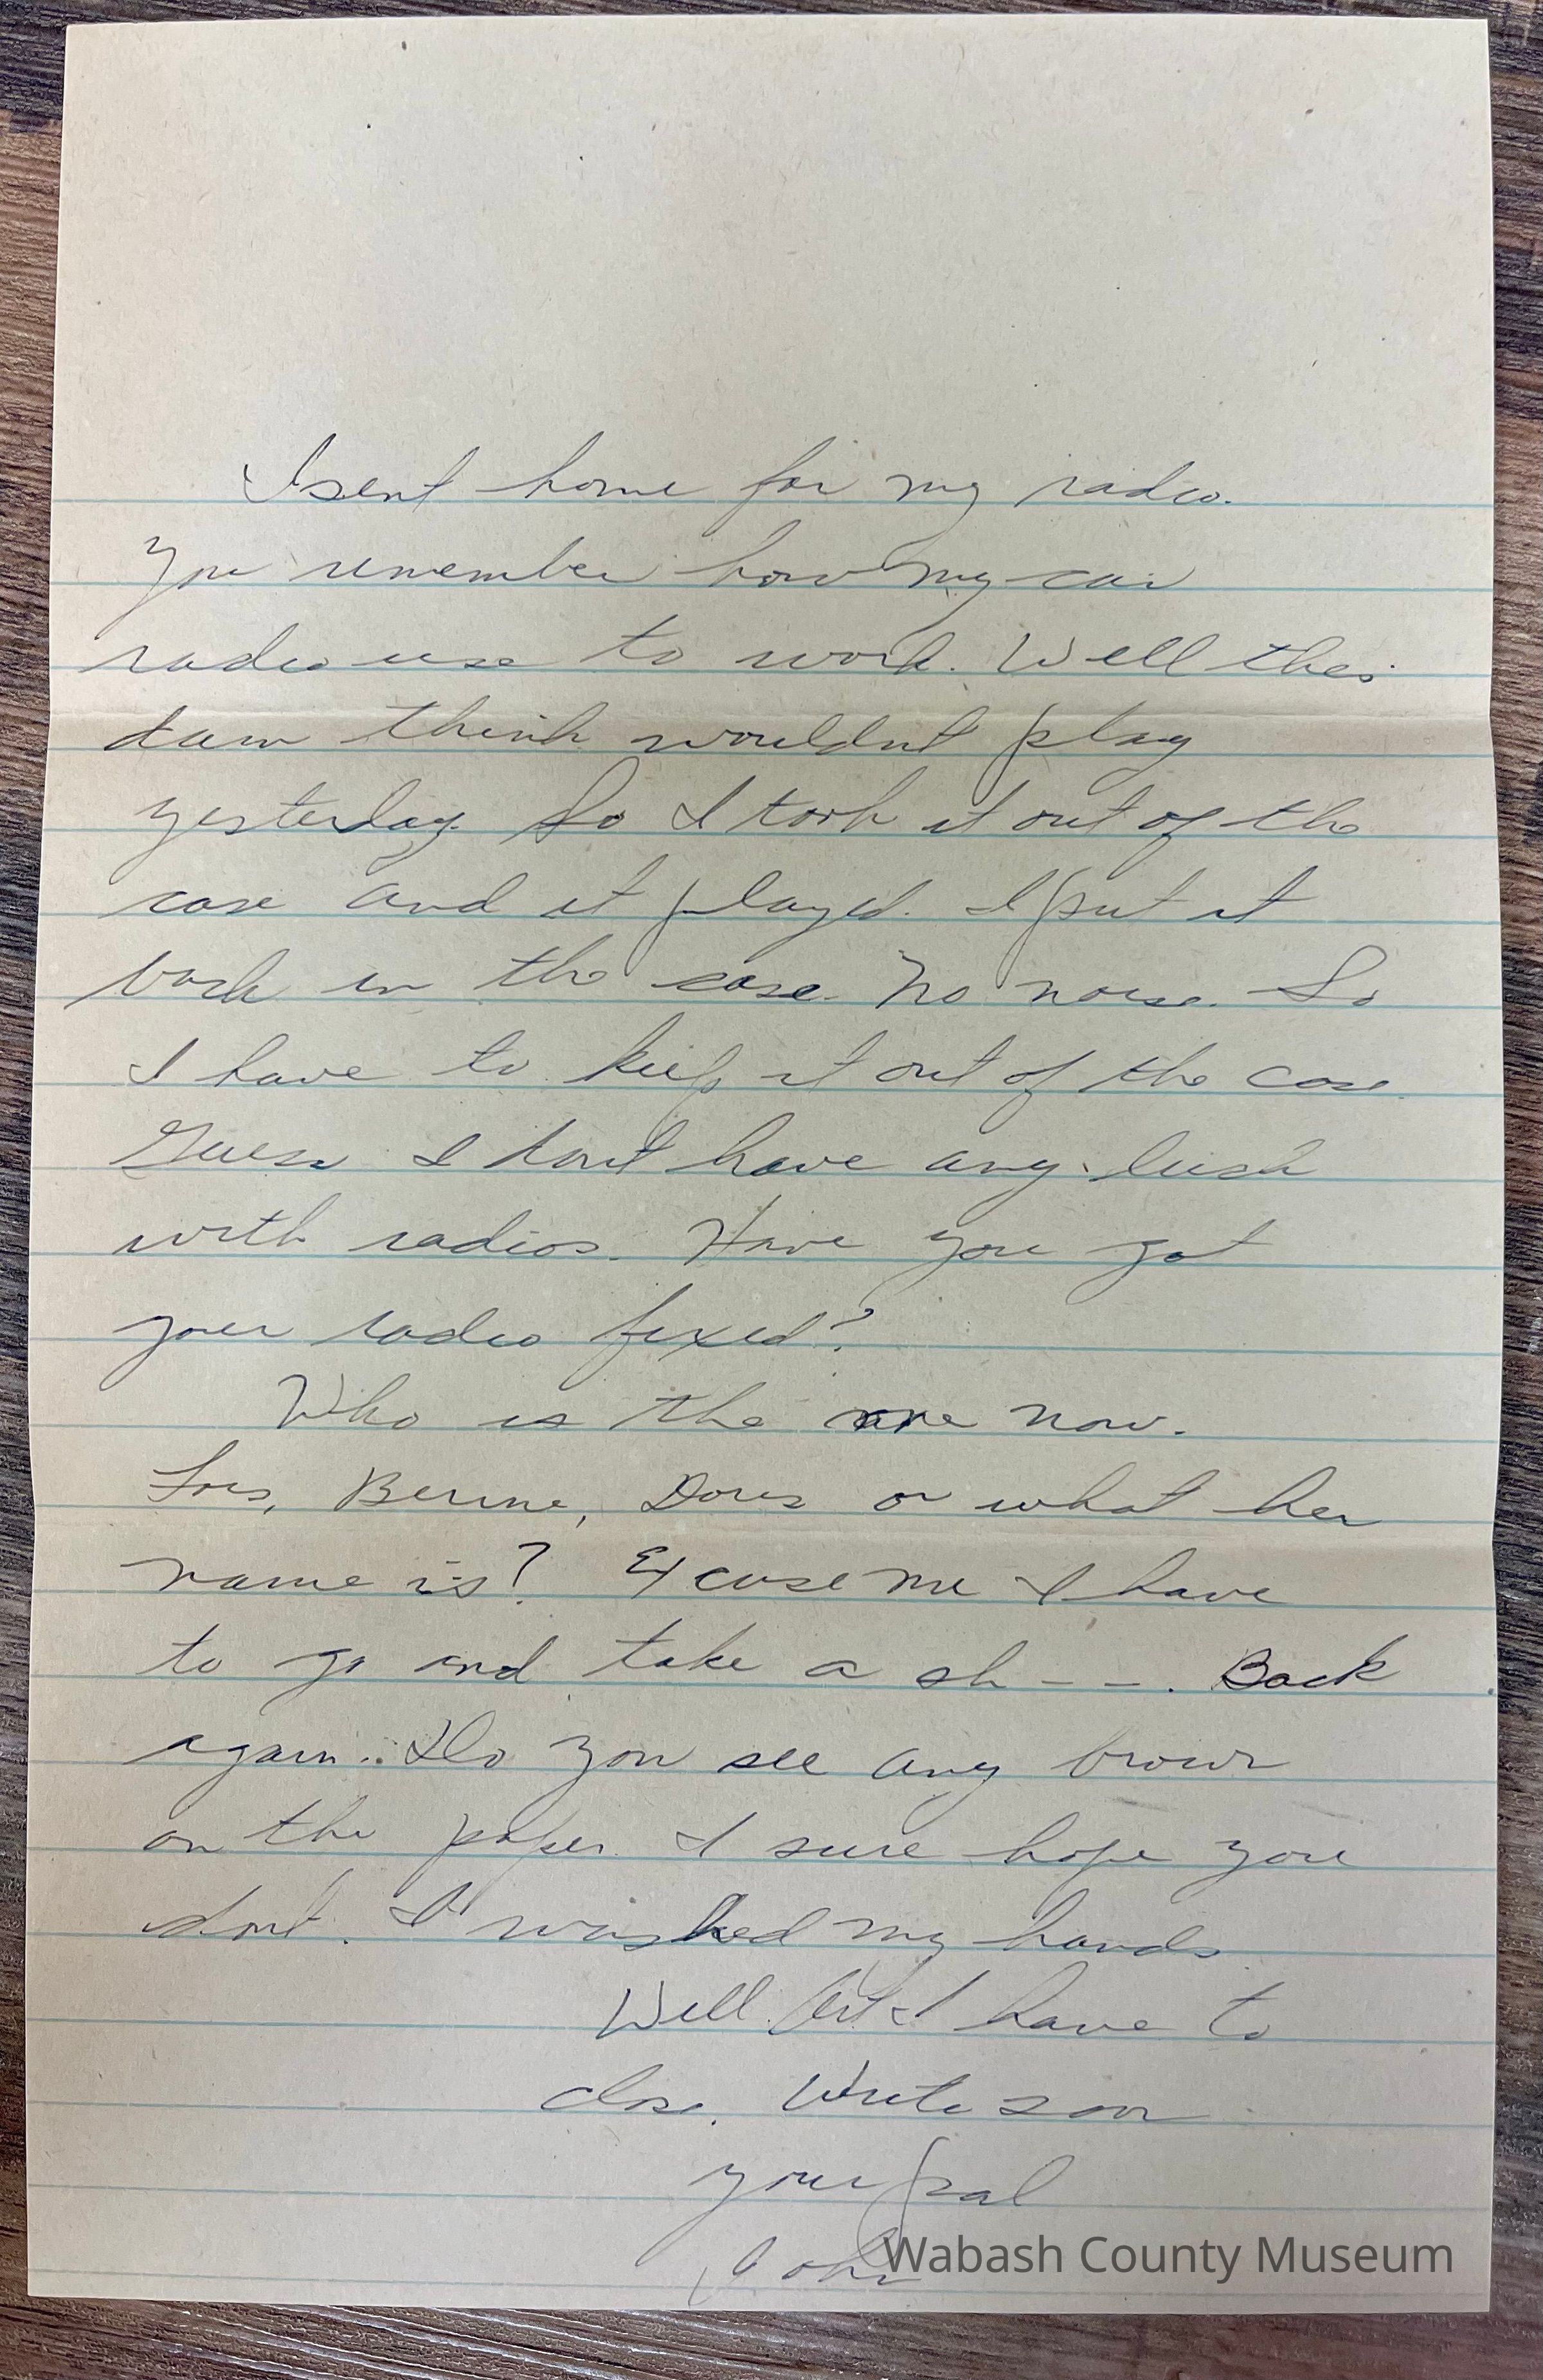 I sent home for my radio.
You remember how my car
radio use to work. Well this
dam think wouldnt play
yesterday. So I took it out of the
case and it played. I put it
back in the case. No noise. So
I have to keep it out of the case.
Guess I dont have any luck
with radios. Have you got
your radio fixed?
Who is the one now.
Lois, Berine, Doris or what her
name is? Excuse me I have
to go and take a sh---. Back
again. Do you see any brown
on the paper. I sure hope you
dont. I washed my hands.
Well Art I have to
close. Write soon
your pal
John
Wabash County Museum